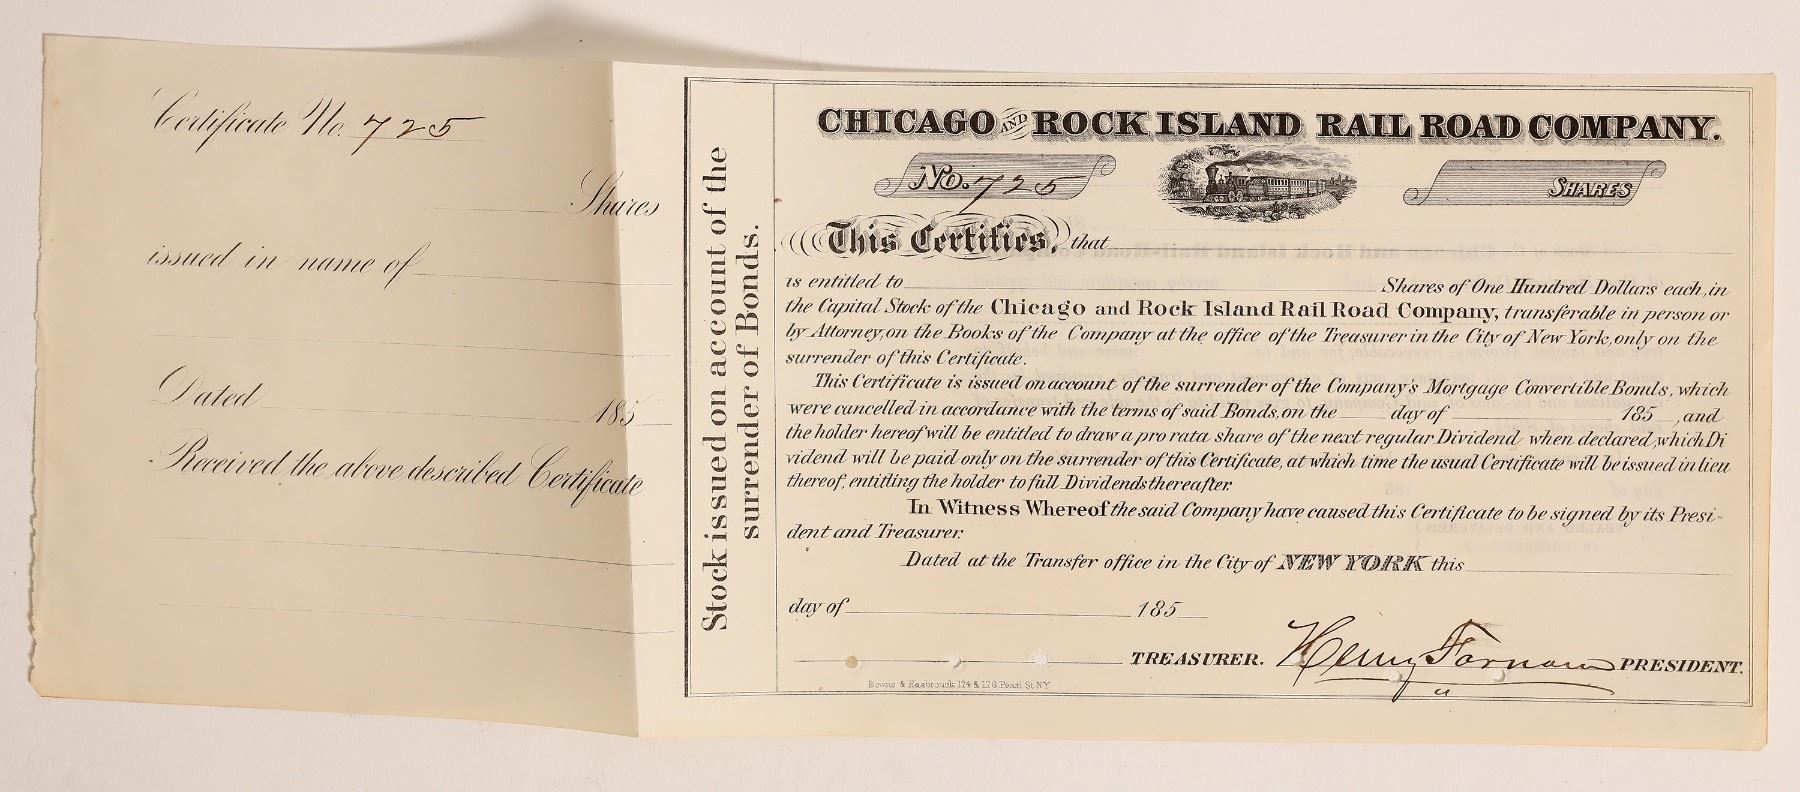 Certificate No. 725
Shares
issued in name of
Dated 185
Received the above described Certificate
Stock issued on account of the
surrender of Bonds.
CHICAGO AND ROCK ISLAND RAIL ROAD COMPANY.
No. 725 SHARES
This Certifies, that
is entitled to Shares of One Hundred Dollars each, in
the Capital Stock of the Chicago and Rock Island Rail Road Company, transferable in person or
by Attorney, on the Books of the Company at the office of the Treasurer in the City of New York, only on the
surrender of this Certificate.
This Certificate is issued on account of the surrender of the Company's Mortgage Convertible Bonds, which
were cancelled in accordance with the terms of said Bonds, on the day of 185 , and
the holder hereof will be entitled to draw a pro rata share of the next regular Dividend when declared, which Di
vidend will be paid only on the surrender of this Certificate, at which time the usual Certificate will be issued in lieu
thereof, entitling the holder to full Dividends thereafter.
In Witness Whereof the said Company have caused this Certificate to be signed by its Presi-
dent and Treasurer.
Dated at the Transfer office in the City of NEW YORK this
day of 185
TREASURER. Henry Farnam PRESIDENT.
Bowne & Hasbrouck 174 & 176 Pearl St. NY